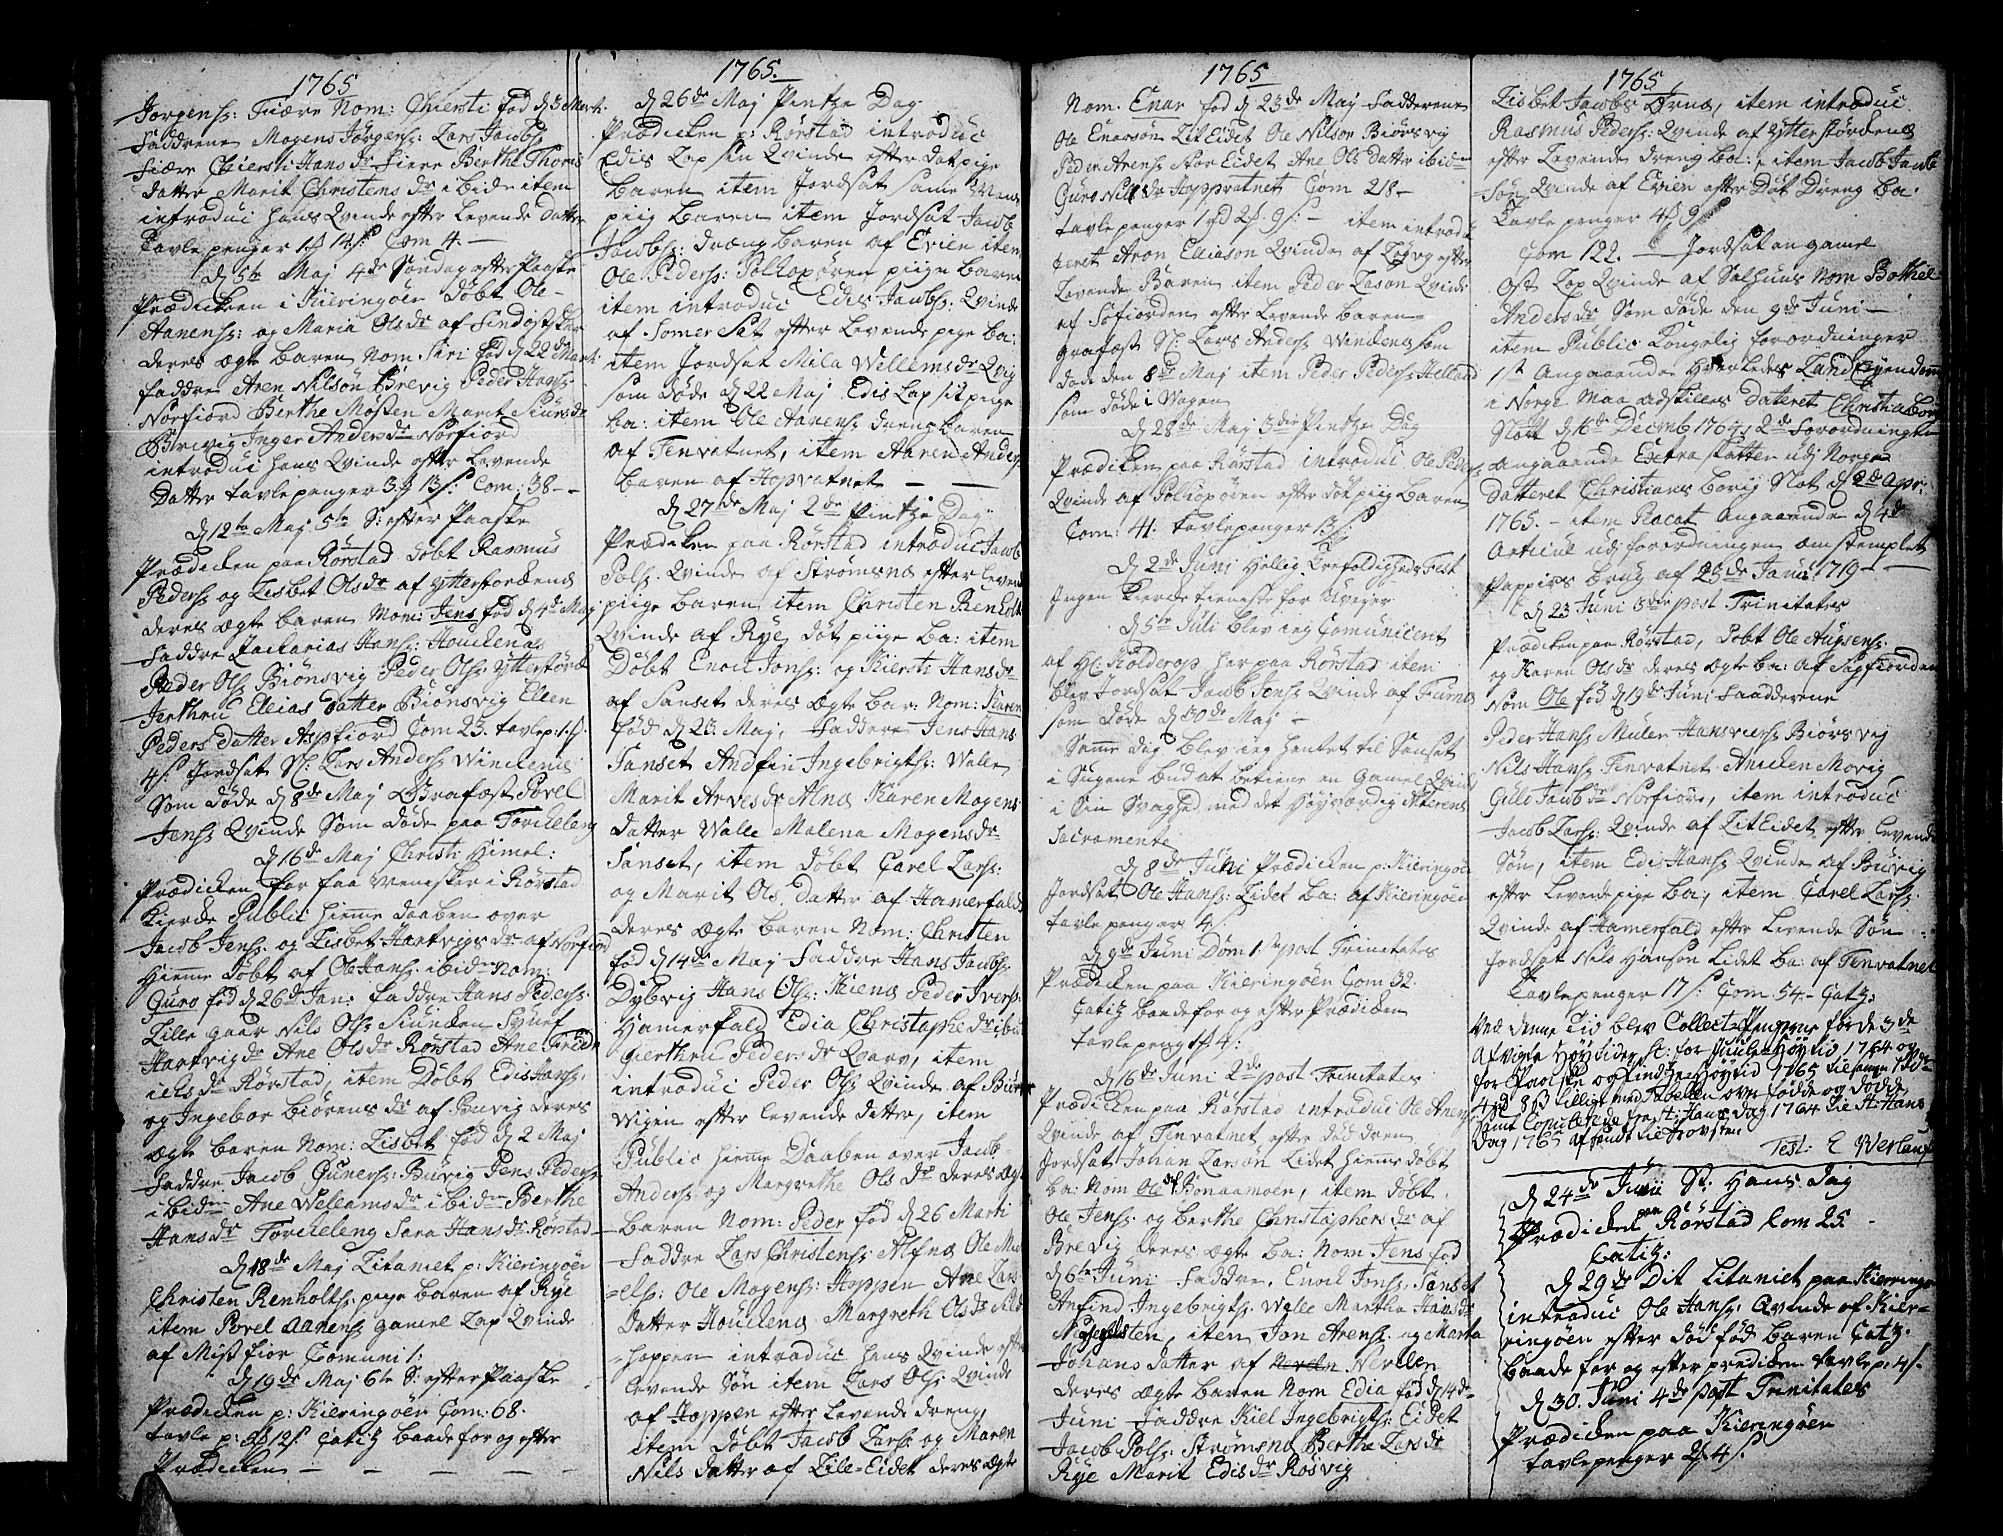 1765
Jørgens: Fiære Nom: Chiersti fød d 3 Marti
Faddrene Mogens Jørgens: Lars Jacobs:
Fiære Chiersti Hans dr Fiere Berthe Thoris
datter Marit Christens dr ibid item
introduc hans Qvinde efter Levende datter
Tavle penger 1 ß 14 s: Com 4. —
d 5te Maj 4de Søndag efter Paaske
Prædicken i Kieringøen døbt Ole
Aanens: og Maria Ols dr af
deres ægte baren Nom. Siri fød d 22de Marti
faddre Aren Nilsøn Brevig Peder Hans:
Norfiord Berthe Møsten Marit Siurs dr
Brevig Inger Anders dr Norfiord
introduc hans Qvinde efter Levende
datter tavlepenger 3 ß 13 s: Com: 38 —
d 12te Maj 5te S: efter Paaske
Prædicken paa Rørstad døbt Rasmus
Peders: og Lisbet Ols dr af ytterfordens
deres ægte baren Nom: Jens fød d 4de Maj
Faddre Zacharias Hans:
Peder Ols: Biønsvig Peder Ols:
Jerthru Elias datter Biønsvig Ellen
Peders datter Aspfiord Com 23. tavlep: 1.
4 s: Jordsat S: Lars Anders: Winckenes
Som døde d 8de Maj Grafæst Povel
Jens: Qvinde Som døde paa Torckeleng
d 16de Maj Christi Himel:
Prædicken for faa Menesker i Rørstad
Kierke Public hieme daaben over
Jacob Jens: og Lisbet Hartvigs dr af Norfiord
Hieme døbt af Ole Hans: ibidem Nom:
Guro fød d 26de Jan: faddre Hans Peders:
Lille gaar Nils Ols: Siuncken Synef
Hartvig dr Ane Ols dr Rørstad Ane
iels dr Rørstad, item Døbt Edis Hans:
og Ingebor Biørens dr af Buvig deres
ægte baren Nom: Lisbet fød d 2 Maj
Faddre Jacob Guners: Buvig Jens Peders:
ibidm Ane Wellams dr ibidm Berthe
Hans dr Torckeleng Sara Hans dr Rørstad
d 18de Maj Litaniet p: Kieringøen
Christen Renholts: pige baren af Rye
item Povel Aanens: gamel Lap Qvinde
af Misfior Comuni 1:
d 19de Maj 6te S: efter Paaske
Prædicken p: Kieringøen Com: 68.
tavle p: 12 s: Catiz baade for og efter
Prædicken — — — — —
1765.
d 26de Maj Pintze Dag
Prædicken p: Rørstad introduc
Edis Lap sin Qvinde efter døt pige
baren item Jordsat same
piig baren item Jordsat Jacob
Jacobs: dræng baren af Evien item
Ole Peders: Polhopøren piige baren
item introduc Edis Jacobs: Qvinde
af Somer Sæt efter Levende pige ba:
item Jordsat Mila Wellems dr Qvig
som døde d 22 Maj Edis Lap sit pige
ba: item Ole Aanens: dreng baren
af Tenvatnet, item Aaren Anders:
baren af Hopvatnet — —
d 27de Maj 2de Pintze Dag
Prædicken paa Rørstad introduc Jacob
Pols: Qvinde af Strømsnes efter Leven
piige baren item Christen Renholts
Qvinde af Rye døt piige ba: item
Døbt Enoch Jons: og Kiersti Hans dr
af Sanset deres ægte bar: Nom: Karen
fød d 23. Maj, Faddere Jens Hans
Sanset Andfin Ingebrigts: Walle
Marit Arves dr Alnes Karen Mogens
datter Walle Malena Mogens dr
Sanset, item døbt Carel Lars:
og Marit Ols datter af Hamerfald
deres ægte baren Nom: Christen
fød d 14de Maj Faddre Hans Jacobs:
Dybvig Hans Ols: Kienes Peder Ivers:
Hamerfald Edia Christophe dr ibid
Gierthru Peders dr Qvarv, item
introduc Peder Ols: Qvinde af Bur
Wigen efter levende datter, item
Public hieme Daaben over Jacob
Anders: og Margrethe Ols dr deres ægte
Baren Nom: Peder fød d 26 Marti
Faddre Lars Christens: Alfnes Ole Mic
=els: Ole Mogens: Hoppen Ane Lars
datter Houckenes Margreth Ols dr Nild
=hoppen introduc hans Qvinde efter
levende Søn item Lars Ols: Qvinde
af Hoppen efter levende dreng
item døbt Jacob Lars: og Maren
Nils datter af Lille=Eidet deres ægte
1765
Nom. Enar fød d 23de Maj Fadderene
Ole Enarsøn Lit Eidet Ole Nilsøn Biørsvig
Peder Arens: Nor Eidet Ane Ols datter ibidm
Guro Nils dr Hopvatnet Com 218 —
tavlepenger 1 rd 2 ß. 9 s: — item introdu
ceret Aron Eliasøn Qvinde af Løgvg efter
Levende Baren item Peder Lasøn Qvinde
af Sørfiorden efter Levende baren
grafæst S: Lars Anders: Windenes som
døde den 8de Maj item Peder Peders: Helland
som døde i Vogen
d 28de Maj 3die Pintze Dag
Prædicken paa Rørstad introduc Ole Peders:
Qvinde af Polhopøen efter døt piig Baren
Com: 41. tavlepenger 13 s:
d 2de Juni Hellig Trefoldigheds Fest
Ingen Kierche tieneste for Uvejer
d 5te Juli blev ieg Comunicent
af Hr: Kolderup her paa Rørstad item
blev Jordsat Jacob Jens: Qvinde af Furnes
som døde d 30de Maj —
Samme dag blev ieg hentet til Sanset
i Sygene bud at betiene en Gamel Qvinde
i Sin Svaghed med det Høyværdig Alterens
Sacramente
d 8de Juni Prædicken p: Kieringøen
Jordsat Ole Hans: Lidet ba: af Kieringøen
tavlepenger 4 s:
d 9de Juni Dom 1ste post Trinitates
Prædicken paa Kieringøen Com 32.
Catiz baade for og efter Prædicken
tavlepeng 1 ß 4:
d 16de Juni 2de post Trinitates
Prædicken paa Rørstad introduc Ole Anens:
Qvinde af Tenvatnet efter død dren
Jordsat Johan Larsøn Lidet hiems døbt
ba: Nom Ole af Bonaamoen, item døbt
Ole Jens: og Berthe Christophers dr af
Brevig deres ægte ba: Nom Jens fød
d 6te Juni Faddre, Enoch Jons: Sanset
Anfind Ingebrigts: Walle Martha Hans dr
item Jon Arens: og Marta
Johans datter af Nerden
deres ægte baren Nom Edia fød d 14de
Juni Faddre Kiel Ingebrigts: Eidet
Jacob Pols: Strømsnes Berthe Lars dr
Rye Marit Edis dr Røsvig
1765
Lisbet Jacobs Ørnes, item introduc
Rasmus Peders: Qvinde af ytterfordens
efter Levende dreng ba: item Jacob Jacob
Søn Qvinde af Evien efter Døt Dreng ba:
Tavle penger 4 ß 9 s:
Com 122. — Jordsat en gamel
Ost Lap Qvinde af Salhuus Nom Bothel
Anders dr Som døde den 9de Juni —
item Public Kongelig forordninger
1st Angaaende Hvorledes Land Eyendom
i Norge maa adskilles Dateret Christiansborg
Slott d 16de Decemb 1764, 2de Forordningen
angaaende Extra skatten udi Norge
Datteret Christians borg Slot d 2de Apr:
1765. — item Placat angaaende d 4de
Articul udj forordningen om stemplet
Pappirs brug af 23de Janu 1719 —
d 23 Juni 3de post Trinitates
Prædicken paa Rørstad, Døbt Ole Augsens:
og Karen Ols dr deres ægte ba: af Sagfiorden
Nom Ole fød d 19de Juni Faadderene
Peder Hans: Mulen Hans Biørsvig
Nils Hans: Tenvatnet Anicken Movig
Gulo Jacob dr Norfiord, item introduc
Jacob Lars: Qvinde af Lit Eidet efter levende
Søn, item Edis Hans: Qvinde af Buvig
efter Levende pige ba; item Carel Lars:
Qvinde af Hamerfald efter Levende Søn
Jordsat Nils Hansøn Lidet ba: af Tenvatnet
Tavlepenger 17 s: Com 54 — Catiz:
Ved denne Tid blev Collect Pengene for de 3de
Afvigte Høytider sc. for Juule Høytid 1764 og
for Paaske og Pindtze Høytid 1765 tilsammen
4 rd 3 ß tillige med Tabellen over fødde og dødde
samt Copulerede fra St: Hans dag 1764 til St: Hans
dag 1765 afsendt til Provsten
Test: E Werlauf
d 24de Junii St. Hans dag
Prædicket paa Rörstad Com 25.
Catiz:
d 29de Dit Litaniet paa Kieringø
introduc Ole Hans: Qvinde af Kier=
ringøen efter død fød baren Catiz.
baade for og efter predicken tavle p: 4 s.
d 30. Juni 4de post Trinitates
Prædicken paa Kieringøen
tavlepenger 2 ß 4 s.